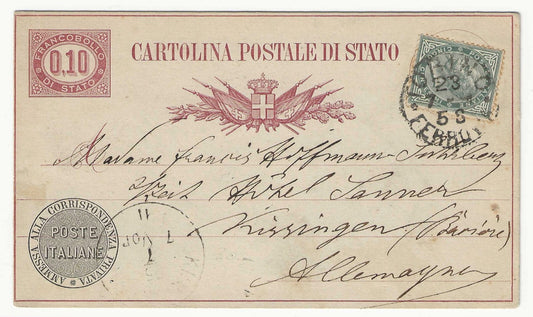 FRANCOBOLLO
0,10
DI STATO
CARTOLINA POSTALE DI STATO
TORINO
23
5 S
FERROV
Madame Francis Hoffmann
Hôtel Sanner
Kissingen (Bavière)
Allemagne
AMMESSA ALLA CORRISPONDENZA PRIVATA
POSTE
ITALIANE
11
7